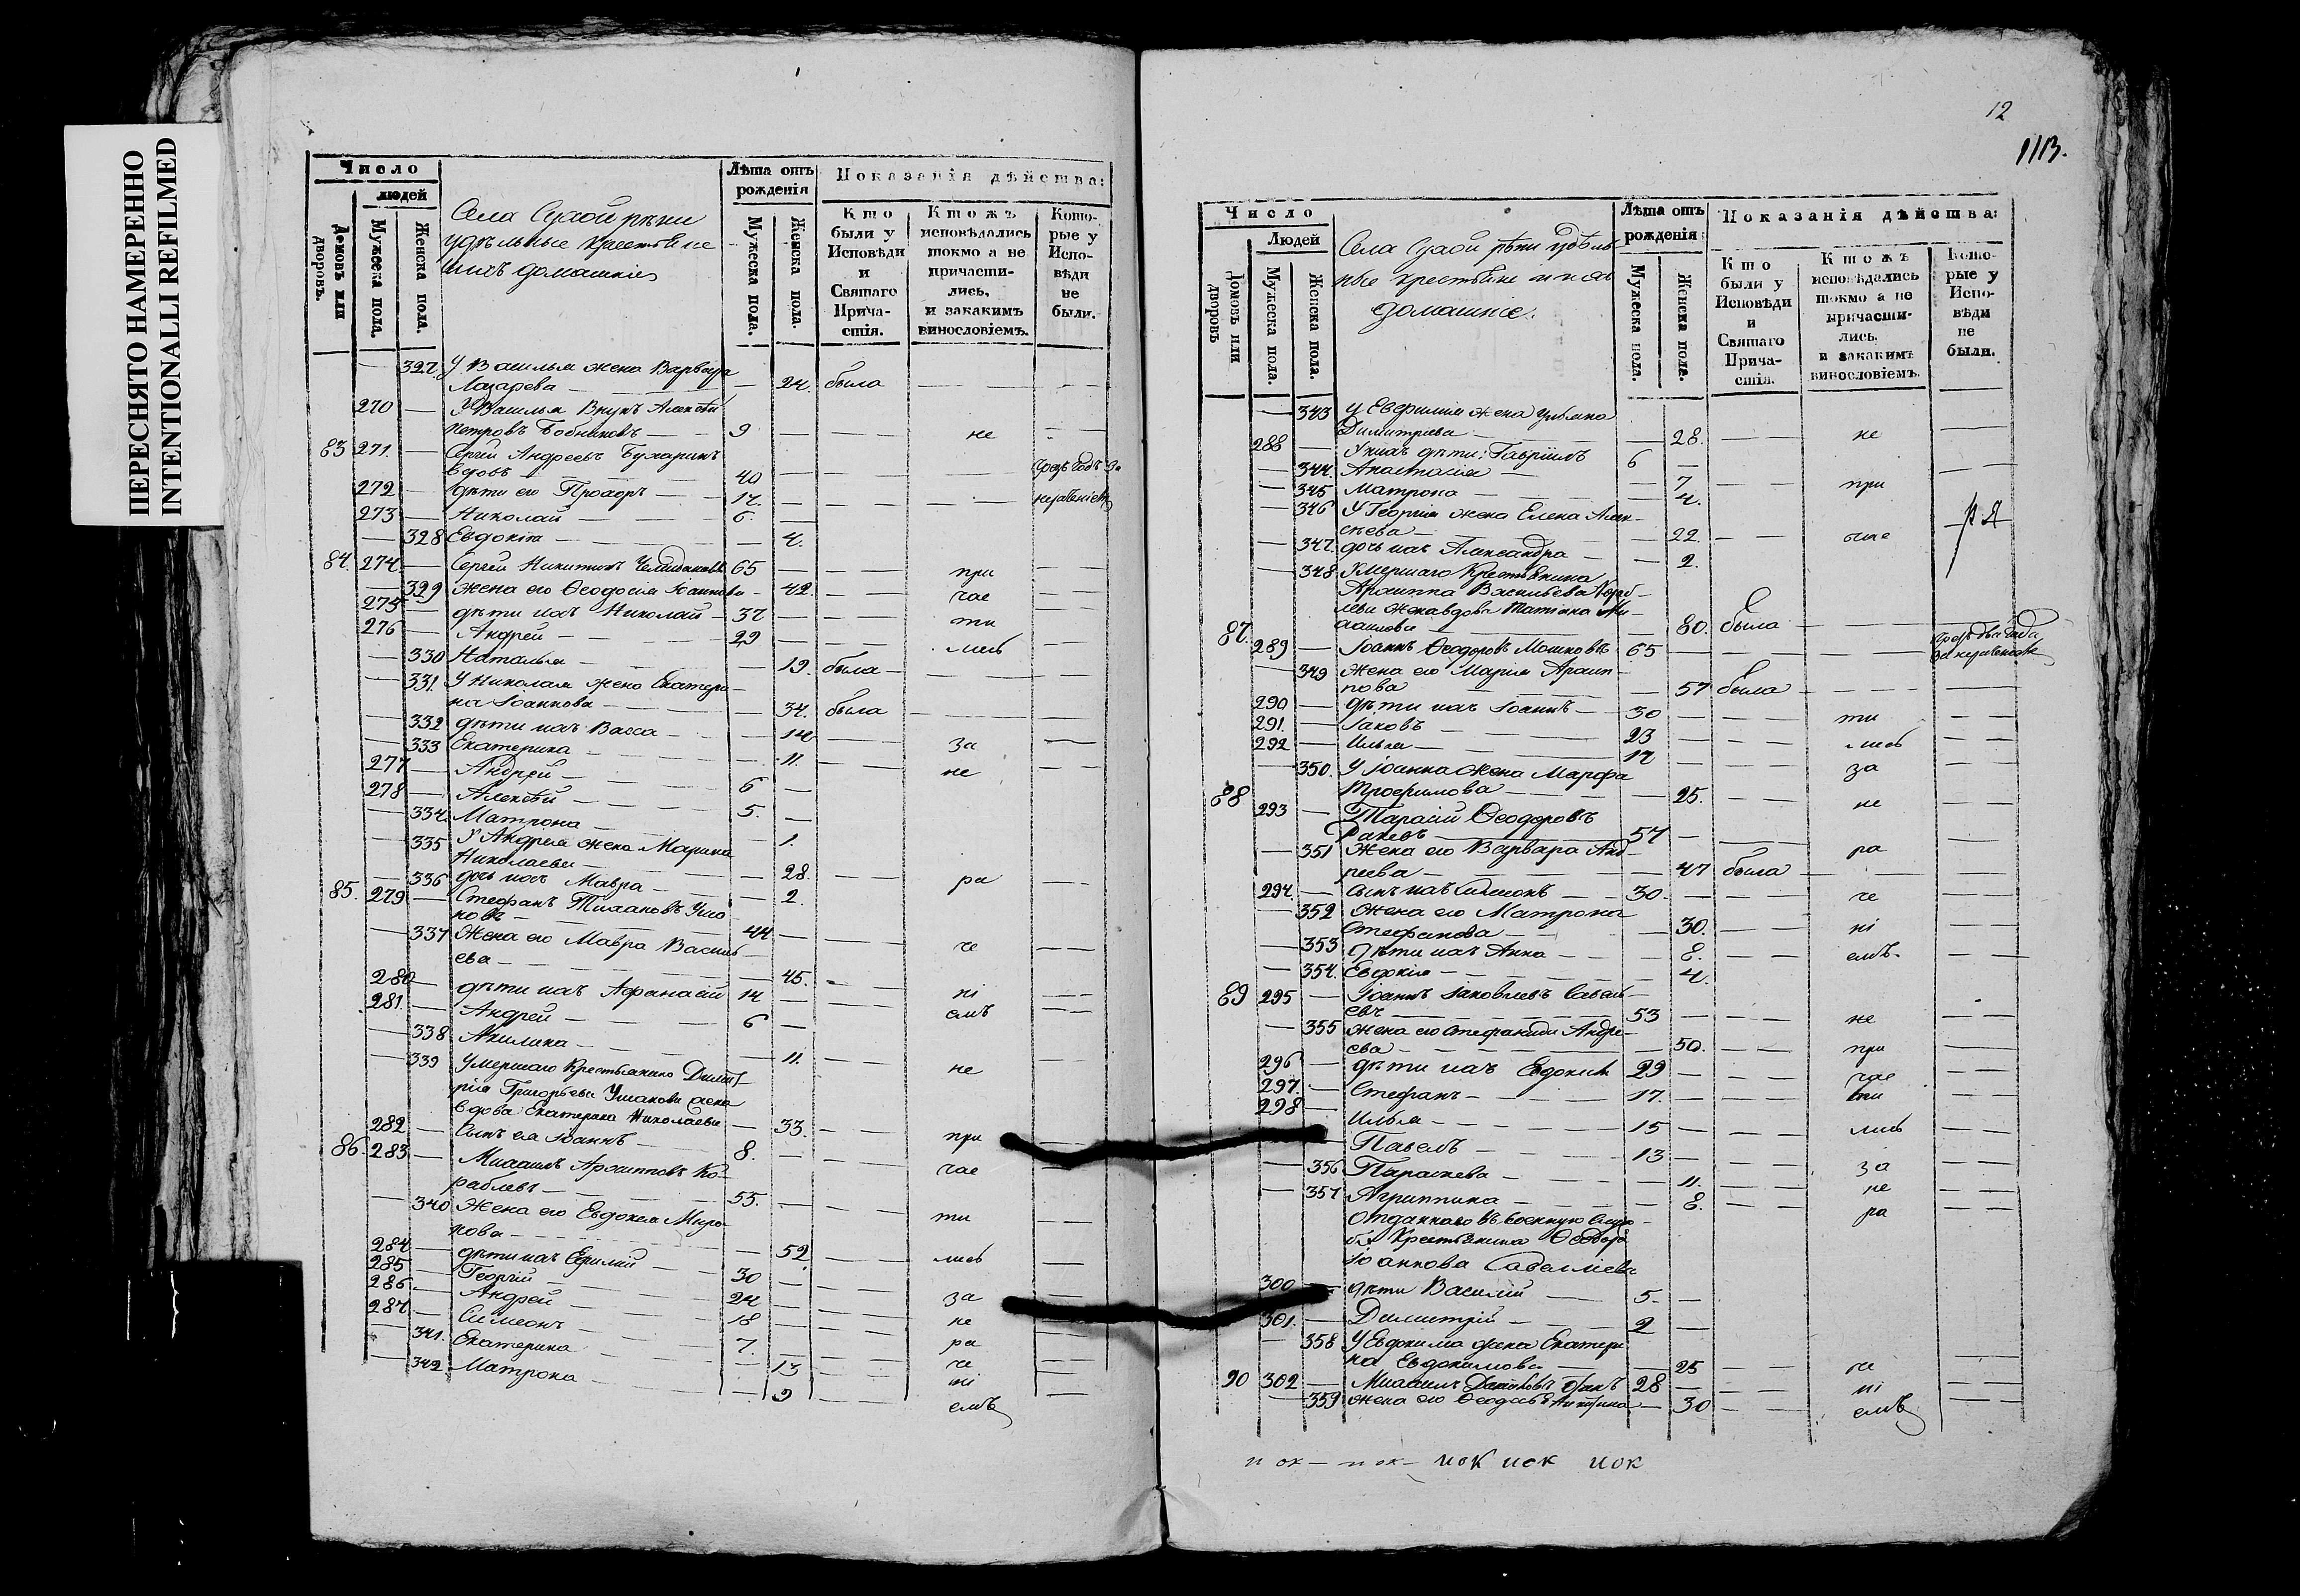 ПЕРЕСНЯТО НАМЕРЕННО
INTENTIONALLI REFILMED
Число
людей
Домовъ или дворовъ.
Мужеска пола.
Женска пола.
Села Сухой рѣки
удѣльные крестьяне
ихъ домашніе
Лѣта отъ рожденія
Мужеска пола.
Женска пола.
Показанія дѣйства:
Кто были у Исповѣди и Святаго Причастія.
Ктожъ исповѣдались токмо а не причастились, и закакимъ винословіемъ.
Которые у Исповѣди не были.
327. У Василья жена Варвара
Лазарева — 24. была
270 — У Василья Внукъ Алексѣй
Петровъ Бобниковъ — 9 не
83 271. — Сергій Андреевъ Бухаринъ
вдовъ — 40
272 — дѣти его Прохоръ — 17.
273 — Николай — 6.
328 Евдокія — 4.
84. 274 — Сергій Никитинъ 65 при
329 жена его Ѳеодосія Іоаннова — 42. чае
275 — дѣти ихъ Николай — 37 ти
276 — Андрей — 29 лись
330 Наталья — 19. была
331. У Николая жена Екатери-
на Іоаннова — 34. была
332 дѣти ихъ Васса — 14 за
333 Екатерина — 11. не
277 — Андрей — 6
278 — Алексѣй — 5.
334. Матрона — 1.
335 У Андрея жена Марина
Николаева — 28. ра
336 дочь ихъ Мавра — 2.
85. 279 — Стефанъ Тихановъ Уша
ковъ — 44
337 Жена его Мавра Василь-
ева — 45. че
280 — дѣти ихъ Афанасій 14 ні
281. — Андрей — 6 емъ
338 Акилина — 11.
339 Умершаго Крестьянина Димит-
рія Григорьева Ушакова жена
вдова Екатерина Николаева — 33. не
282 — Сынъ ея Іоаннъ 8. при
86. 283 — Михаилъ Архиповъ Ко-
раблевъ — 55. чае
340 Жена его Евдокія Миро-
нова — 52. ти
284 — дѣти ихъ 30 лись
285 — Георгій — 24 за
286 — Андрей — 18 не
287 — Симеонъ 7. ра
341. Екатерина — 13 че
342. Матрона — 9 ні
емъ
12
1113.
Число
Людей
Домовъ или дворовъ
Мужеска пола.
Женска пола.
Села Сухой рѣки удѣль
ные крестьяне и ихъ
домашніе.
Лѣта отъ рожденія
Мужеска пола.
Женска пола.
Показанія дѣйства:
Кто были у Исповѣди и Святаго Причастія.
Ктожъ исповѣдались токмо а не причастились, и закакимъ винословіемъ.
Которые у Исповѣди не были.
343 У Евфимія жена Ульяна
Димитріева — 28. не
288 — У нихъ дѣти: Гавріилъ 6
344. Анастасія — 7
345 Матрона — 4. при
346 У Георгія жена Елена Алек-
сѣева — 22. чае
347. дочь ихъ Александра — 2.
348 Умершаго Крестьянина
Архиппа Васильева Кораб-
лева жена вдова Татіана Ми-
хаилова — 80. была
87. 289 — Іоаннъ Ѳеодоровъ Мошковъ 65
349 Жена его Марія Архип-
пова — 57 была
290 — дѣти ихъ Іоаннъ — 30 ти
291. — Іаковъ — 23 лись
292 — Илья — 17
350. У Іоанна жена Марфа за
Трофимова — 25. не
88 293 — Тарасій Ѳеодоровъ
57
351 Жена его Варвара Анд- ра
реева — 47 была
294. — Сынъ ихъ Симеонъ — 30. че
352 Жена его Матрона
Стефанова — 30. ні
353 дѣти ихъ Анна — 8. емъ.
354. Евдокія — 4.
89 295 — Іоаннъ Іаковлевъ Савель-
евъ — 53 не
355 жена его Стефанида Андре-
ева — 50. при
296 — дѣти ихъ Евдокимъ 29 чае
297. — Стефанъ — 17. ти
298 — Илья — 15 лись
Павелъ — 13
356 Параскева — 11. за
357 Агриппина — 8. не
Отданнаго въ военную служ- ра
бу Крестьянина Ѳеодора
Іоаннова Савельева
300 дѣти Василій — 5.
301. — Димитрій — 2
358 У Евдокима жена Екатери
на Евдокимова — 25 че
90 302 — Михаилъ 28 ні
359 жена его Никитина — 30 емъ